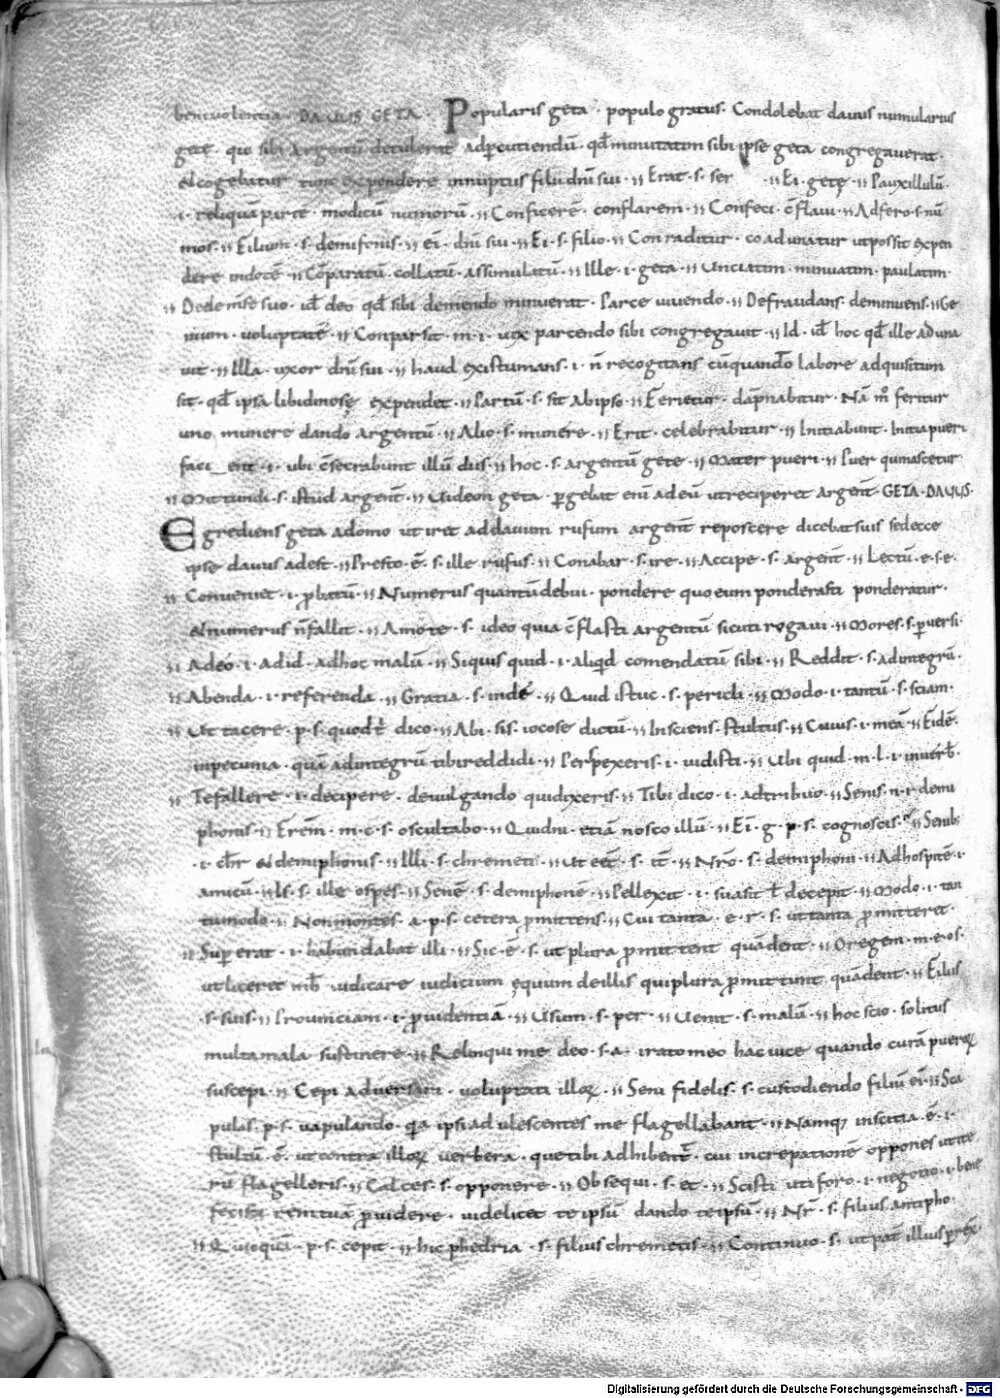 beniuolentia · DAUUS GETA · Popularis geta · populo gratus · Condolebat dauus numularius
gete · qui sibi argentū detulerat adpcutiendū · qđ minutatim sibi ipse geta congregauerat ·
et cogebatur tunc expendere innuptus filii dn̄i sui · Erat · s · ser Ei · getę · Pauxillulū ·
· i · reliquā parte · modicū numorū · Conficerē · conflarem · Confeci · c̄flaui · Adfero · s · nū
mos · Eilium · s · demifonis · ei · dn̄i sui · Ei · s · filio · Conraditur · coadunatur ut possit expen
dere indotē · Cōparatū · collatū · assimulatū · Ille · i · geta · Unciatim · minuatim · paulatim ·
Dedemse suo · id · deo qđ sibi demendo minuerat · Parce uiuendo · Defraudans · deminuens · Ge
nium · uoluptatē · Conparsit · m · i · uix parcendo sibi congregauit · Id · id · hoc qđ ille aduna
uit · Illa · uxor dn̄i sui · haud existumans · i · n̄ recogitans cū quando labore adquisitum
sit · qđ ipsa libidinosę expendet · Partū · s · sit abipso · Eerietur · dāpnabitur · Nā m̊ feritur
uno munere dando argentū · Alio · s · munere · Erit · celebrabitur · Initiabunt · Initia pueri
facient · i · ubi c̄secrabunt illū dus · hoc · s · argentū gete · Mater pueri · Puer qui nascetur
Mittundi · s · istud argent̄ · Uideon geta · pgebat eni adeū ut reciperet argent̄ · GETA · DAUUS ·
Egrediens geta adomo ut iret ad dauum rufum argent̄ reposcere dicebat suis sedecce
ipse dauus adest · Presto · ē · s · ille rufus · Conabar · s · ire · Accipe · s · argent̄ · Lectū · e · s · e ·
Conueniet · i · pbatū · Numerus quantū debui · pondere quo eum ponderasti ponderatur ·
et numerus n̄ fallit · Amo te · s · ideo quia c̄flasti argentū sicuti rogaui · Mores · s · puersi ·
Adeo · i · ad id · adhoc malū · Siquis quid · i · aliqđ comendatū sibi · Reddit · s · adintegrū ·
Abenda · i · referenda · Gratia · s · inde · Quid istuc · s · pericli · Modo · i · tantū · s · sciam ·
Ut tacere · p · s · quod t̄ dico · Abi · sis · iocose dictū · Insciens · stultus · Cuius · i · meā · Eidē ·
inpecunia · quā adintegrū tibi reddidi · Perspexeris · i · uidisti · Ubi quid · m · l · i · inuerb̄ ·
Te fallere · i · decipere · deuulgando quid dixeris · Tibi dico · i · adtribuo · Senis · n · r · demi
phonis · Erem̄ · m · c · s · oscultabo · Quidni · etiā nosco illū · Ei · g · p · s · cognoscis · Senib;
· i · chr̄ et demiphonis · Illi · s · chremeti · Ut eēt · s · it̄ · Nr̄o · s · demiphoni · Ad hospitē · i ·
amicū · Is · s · ille ospes · Senē · s · demiphonē · Pellexit · i · suasit t̄ decepit · Modo · i · tan
tummodo · Nonmontes · a · p · s · cetera pmittens · Cui tanta · e · r · s · ut tanta pmitteret ·
Superat · i · habundabat illi · Sic · ē · s · ut plura pmittent quā dent · O regem · m · e · os ·
ut liceret mb̄ iudicare iudicium ęquum de illis qui plura pmittunt quā dent · Eilius
· s · suis · Prouinciam · i · puidentiā · Usum · s · per · Uenit · s · malū · hoc scio · solitus
multa mala sustinere · Relinqui me deo · s · a · irato meo hac uice quando curā puerox
suscepi · Cepi aduersari · uoluptati illox · Seni fidelis · s · custodiendo filiū ei · Sca
pulas · p · s · uapulando · qa ipsi adulescentes me flagellabant · Namq; inscitia · ē · i ·
stultū · ē · ut contra illox uerbera · que tibi adhibent̄ · cui increpationē oppones
rū flagelleris · Calces · s · opponere · Obsequi · s · et · Scisti uti foro · i · negotio · i · bene
fecisti rem tuā puidere · uidelicet te ipsū dando te ipsū · Nr̄ · s · filius antipho ·
Quioqui · p · s · cepit · hic phedria · s · filius chremetis · Continuo · s · ut pat̄ illius
Digitalisierung gefördert durch die Deutsche Forschungsgemeinschaft - DFG